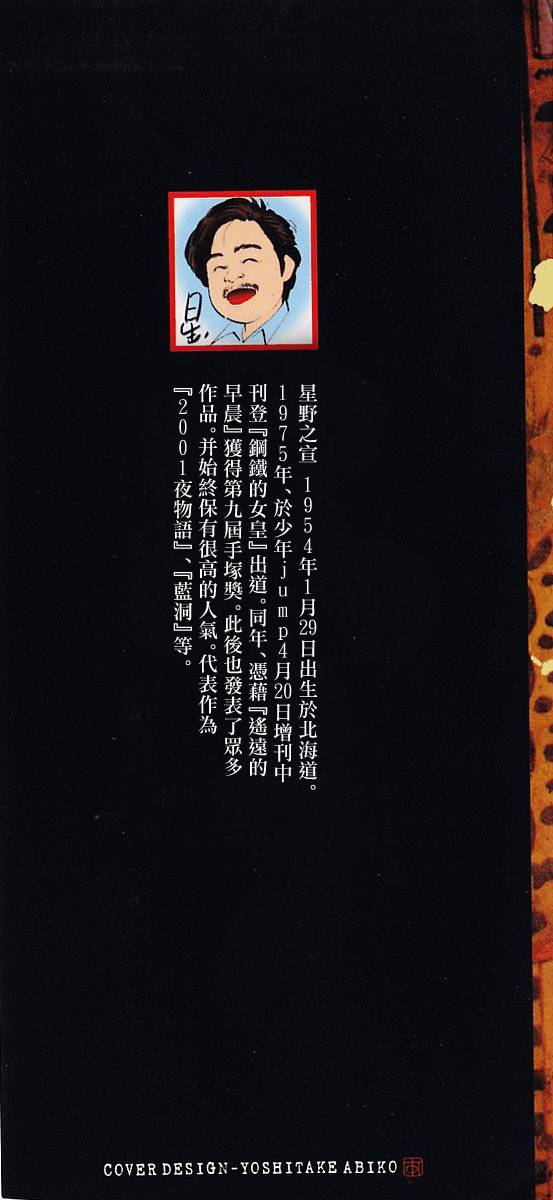 星
星野之宣 1954年1月29日出生於北海道。
1975年、於少年jump4月20日增刊中
刊登『鋼鐵的女皇』出道。同年、憑藉『遙遠的
早晨』獲得第九屆手塚獎。此後也發表了眾多
作品。并始終保有很高的人氣。代表作為
『2001夜物語』、『藍洞』等。
COVER DESIGN-YOSHITAKE ABIKO